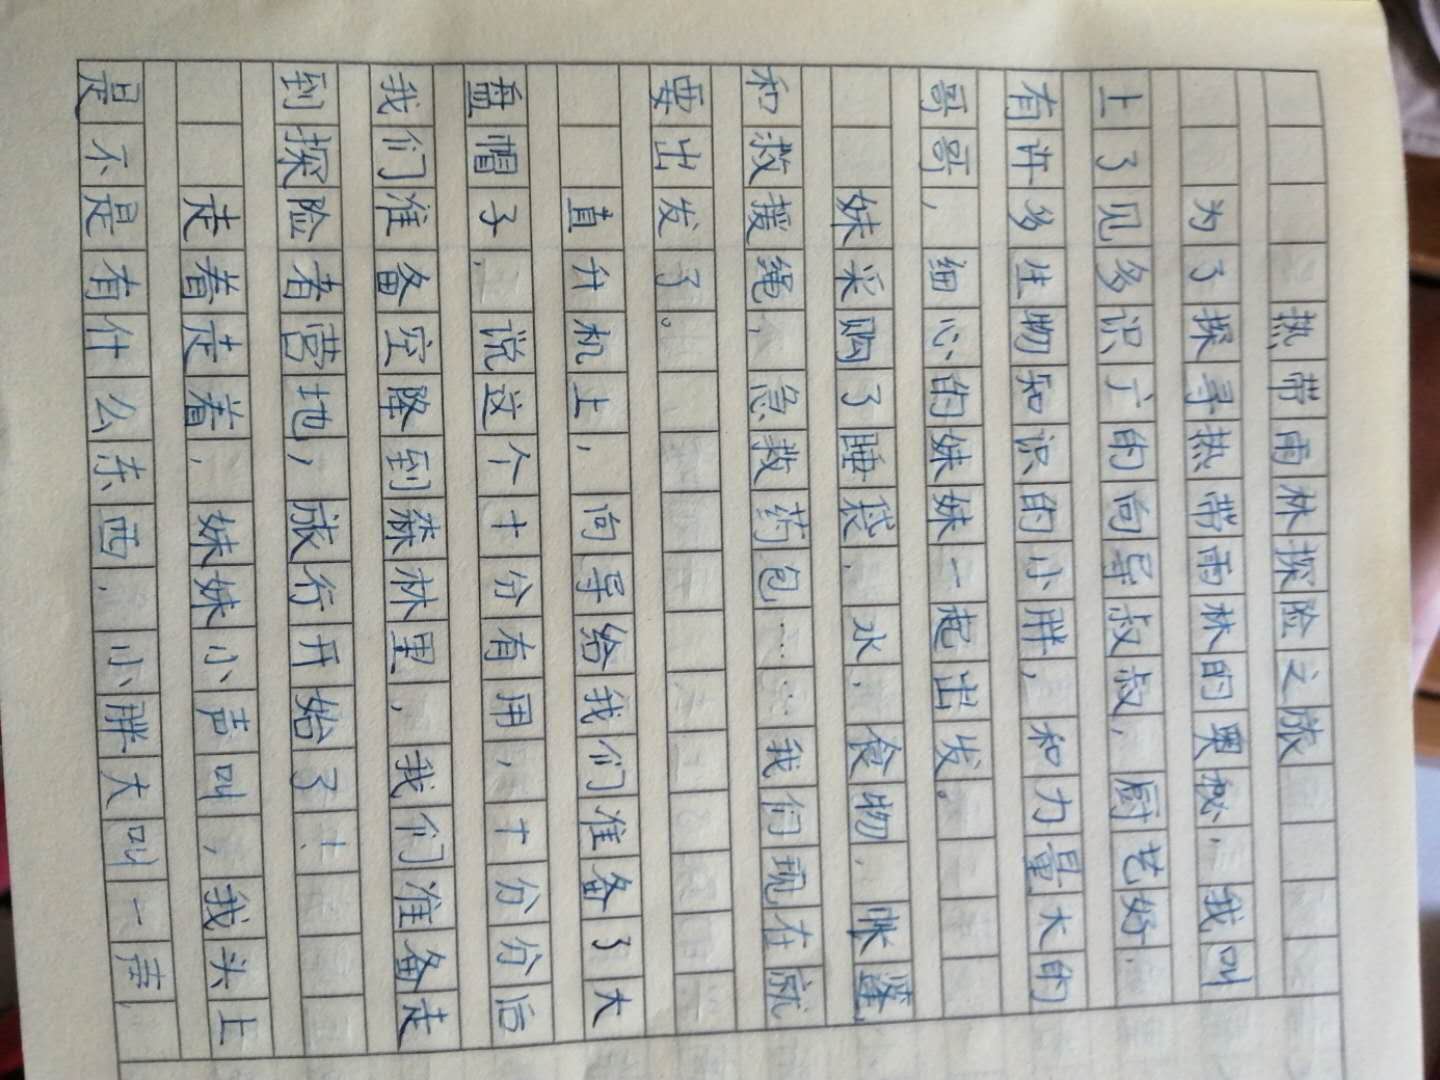 热带雨林探险之旅
为了探寻热带雨林的奥秘，我叫
上了见多识广的向导叔叔，厨艺好，
有许多生物知识的小胖，和力量大的
哥哥，细心的妹妹一起出发。
妹采购了睡袋，水，食物，帐篷，
和救援绳，急救药包……我们现在就
要出发了。
直升机上，向导给我们准备了大
盘帽子，说这个十分有用，十分分后
我们准备空降到森林里，我们准备走
到探险者营地，旅行开始了！
走着走着，妹妹小声叫，我头上
是不是有什么东西，小胖大叫一声，